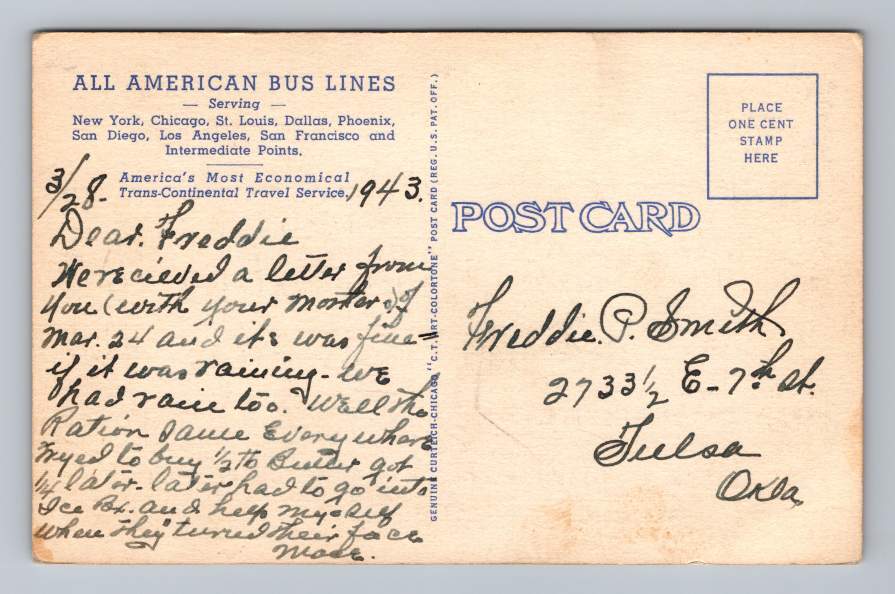 ALL AMERICAN BUS LINES
— Serving —
New York, Chicago, St. Louis, Dallas, Phoenix,
San Diego, Los Angeles, San Francisco and
Intermediate Points.
America's Most Economical
Trans-Continental Travel Service.
3/28- 1943.
Dear. Freddie
We recieved a letter from
you (with your mother) of
Mar. 24 and its was fine=
if it was raining- we
had rain too. Well the
Ration same Everywhere
tryed to buy 1/2 lb Butter got
1/4 later- later had to go into
Ice Bx. and help myself
when they turned their face
GENUINE CURTEICH-CHICAGO "C.T. ART-COLORTONE" POST CARD (REG. U.S. PAT. OFF.)
PLACE
ONE CENT
STAMP
HERE
POST CARD
Freddie. P. Smith
2733 1/2 E- 7th St.
Tulsa
Okla